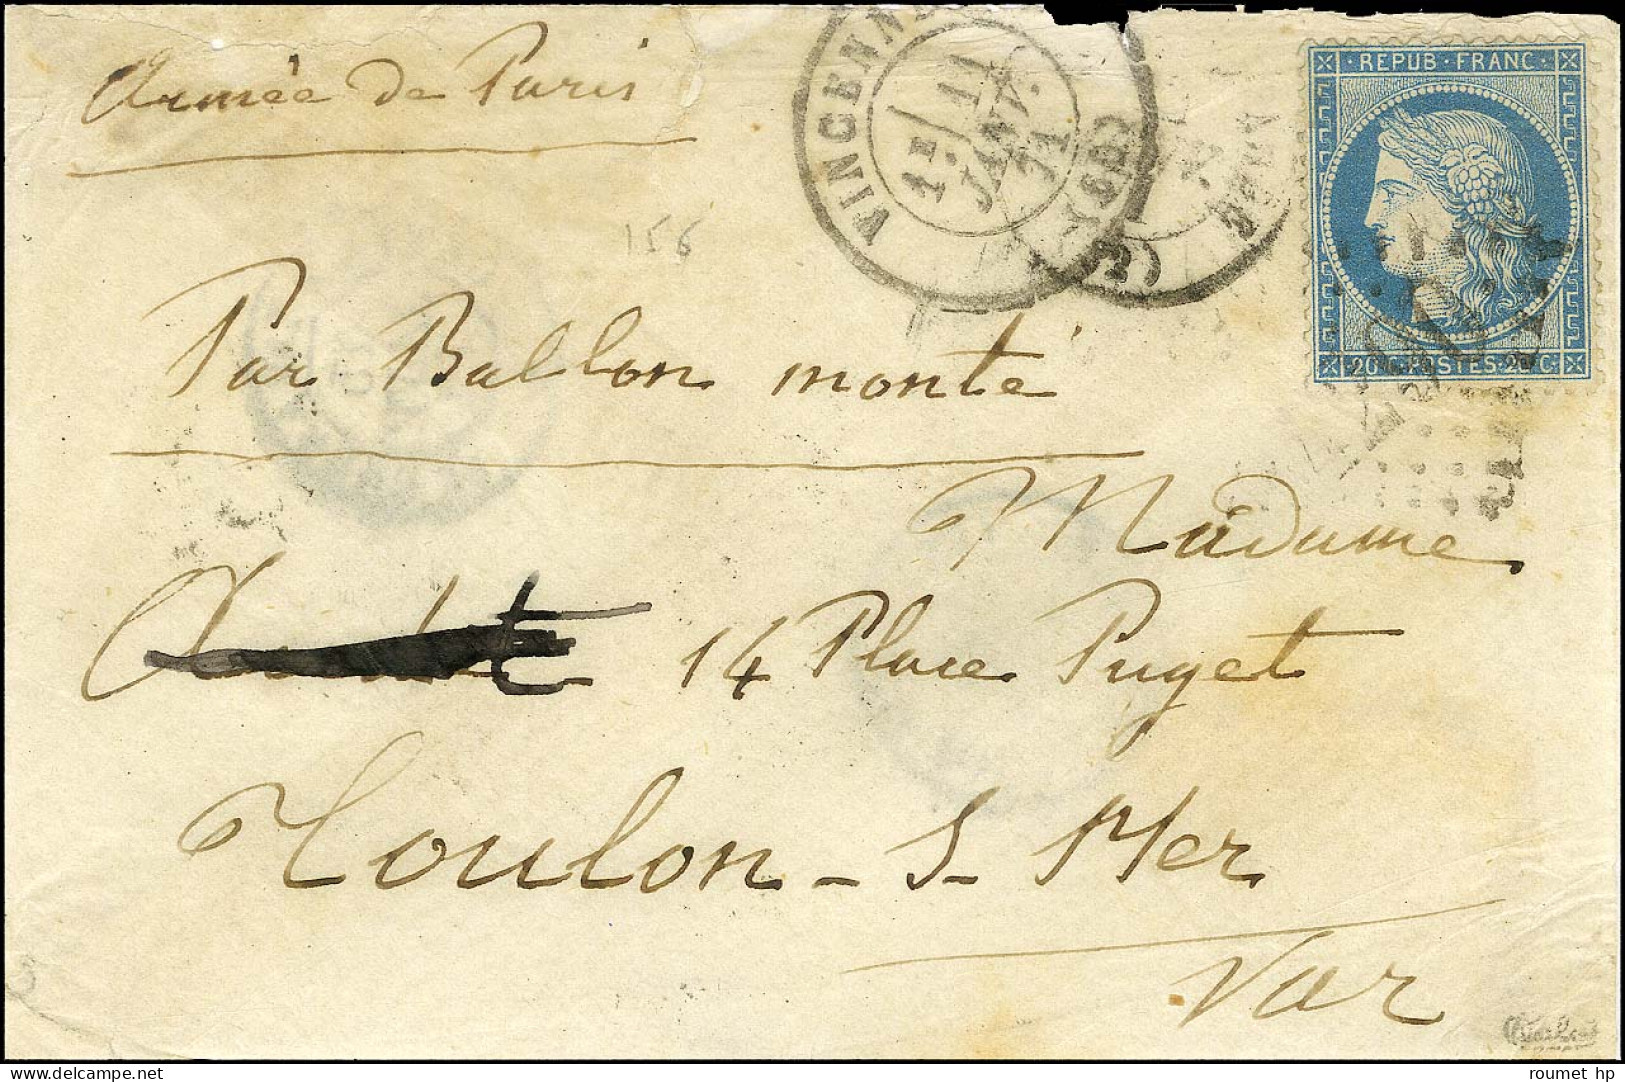 Armée de Paris
VINCENNES
1E/ 11
JANV.
71
(2)
REPUB · FRANC
20 C POSTES 20 C
156
Par Ballon monté
Madame
14 Place Puget
Toulon - S - Mer
Var
roumet hp